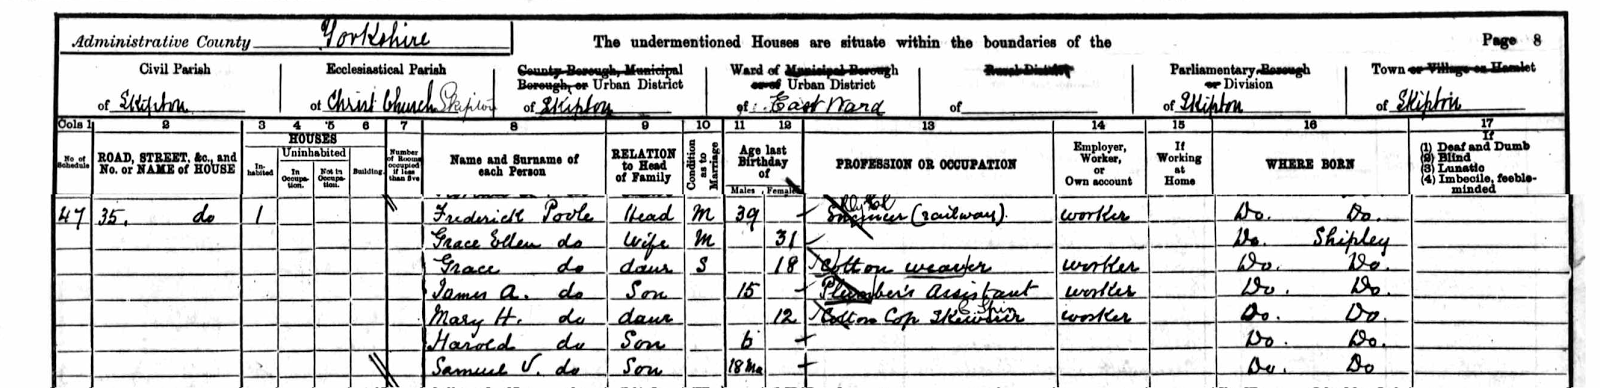 Administrative County Yorkshire
The undermentioned Houses are situate within the boundaries of the
Page 8
Civil Parish of Skipton
Ecclesiastical Parish of Christ Church Skipton
County Borough, Municipal Borough, or Urban District of Skipton
Ward of Municipal Borough or of Urban District of East Ward
Rural District of
Parliamentary Borough or Division of Skipton
Town or Village or Hamlet of Skipton
Cols 1 2 3 4 5 6 7 8 9 10 11 12 13 14 15 16 17
No. of Schedule
ROAD, STREET, &c., and No. or NAME of HOUSE
HOUSES
In-habited
Uninhabited
In Occupa-tion.
Not in Occupa-tion.
Building.
Number of Rooms occupied if less than five
Name and Surname of each Person
RELATION to Head of Family
Condition as to Marriage
Age last Birthday of
Males Females
PROFESSION OR OCCUPATION
Employer, Worker, or Own account
If Working at Home
WHERE BORN
If
(1) Deaf and Dumb
(2) Blind
(3) Lunatic
(4) Imbecile, feeble-minded
47 35. do 1 Frederick Poole Head M 39 Engineer (railway) worker Do. Do.
Grace Ellen do Wife M 31 Do. Shipley
Grace do daur S 18 Cotton weaver worker Do. Do.
James A. do Son 15 Plumber's assistant worker Do. Do.
Mary H. do daur 12 Cotton Cop worker Do. Do.
Harold do Son 6 Do. Do.
Samuel V. do Son 18 Mo Do. Do